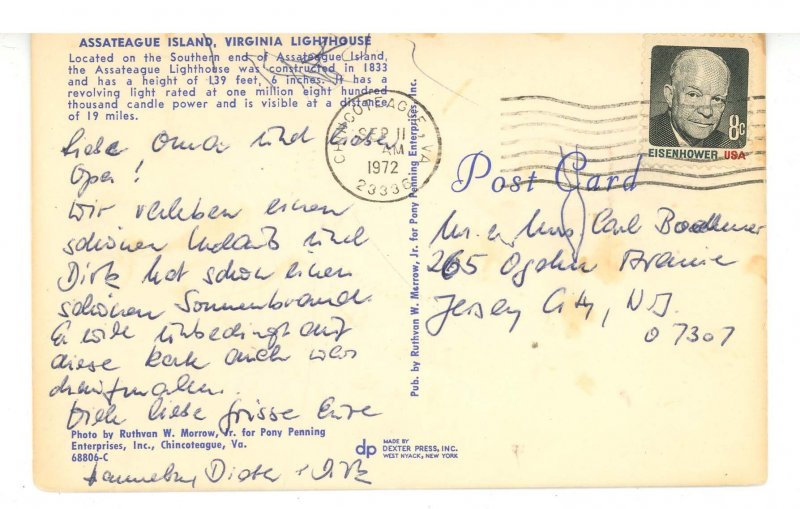 ASSATEAGUE ISLAND, VIRGINIA LIGHTHOUSE
Located on the Southern end of Assateague Island,
the Assateague Lighthouse was constructed in 1833
and has a height of 139 feet, 6 inches. It has a
revolving light rated at one million eight hundred
thousand candle power and is visible at a distance
of 19 miles.
Liebe Oma und Liebe
Opa!
Wir verleben einen
schönen Urlaub und
Dirk hat schon einen
schönen Sonnenbrand.
Er will unbedingt auf
diese Karte auch was
draufmalen.
Viele liebe Grüsse Eure
Photo by Ruthvan W. Morrow, Jr. for Pony Penning
Enterprises, Inc., Chincoteague, Va.
68806-C
Dieter + Dirk
Pub. by Ruthvan W. Morrow, Jr. for Pony Penning Enterprises, Inc.
dp MADE BY
DEXTER PRESS, INC.
WEST NYACK, NEW YORK
CHINCOTEAGUE, VA
SEP 11
AM
1972
23336
8c
EISENHOWER USA
Post Card
Mr. Mrs Carl
265 Ogden Avenue
Jersey City, N.J.
07307